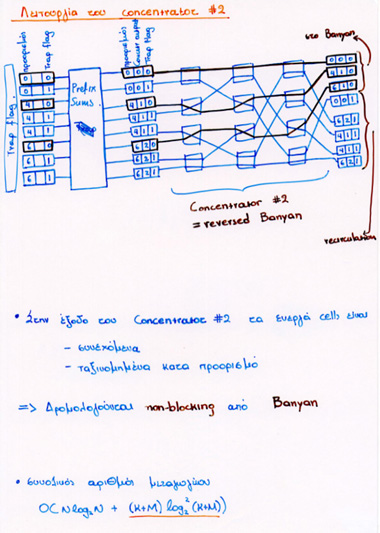 Λειτουργία του Concentrator #2
στο Banyan
προορισμός
Trap flag
προορισμός
Counter output
Trap flag
Trap flag
Prefix
Sums
0 0
0 0 0
0 0 0
0 1
0 0 1
4 1 0
4 0
4 1 0
6 1 0
4 1
4 1 1
0 0 1
4 1
4 1 1
6 2 1
6 0
6 2 0
4 1 1
6 1
6 2 1
4 1 1
6 1
6 2 1
6 2 1
Concentrator #2
= reversed Banyan
recirculation
• Στην έξοδο του Concentrator #2 τα ενεργά cells είναι
– συνεχόμενα
– ταξινομημένα κατα προορισμό
=> Δρομολογούνται non-blocking από Banyan
• συνολικός αριθμός μεταγωγέων
O(N log₂N + (K+M) log₂²(K+M))